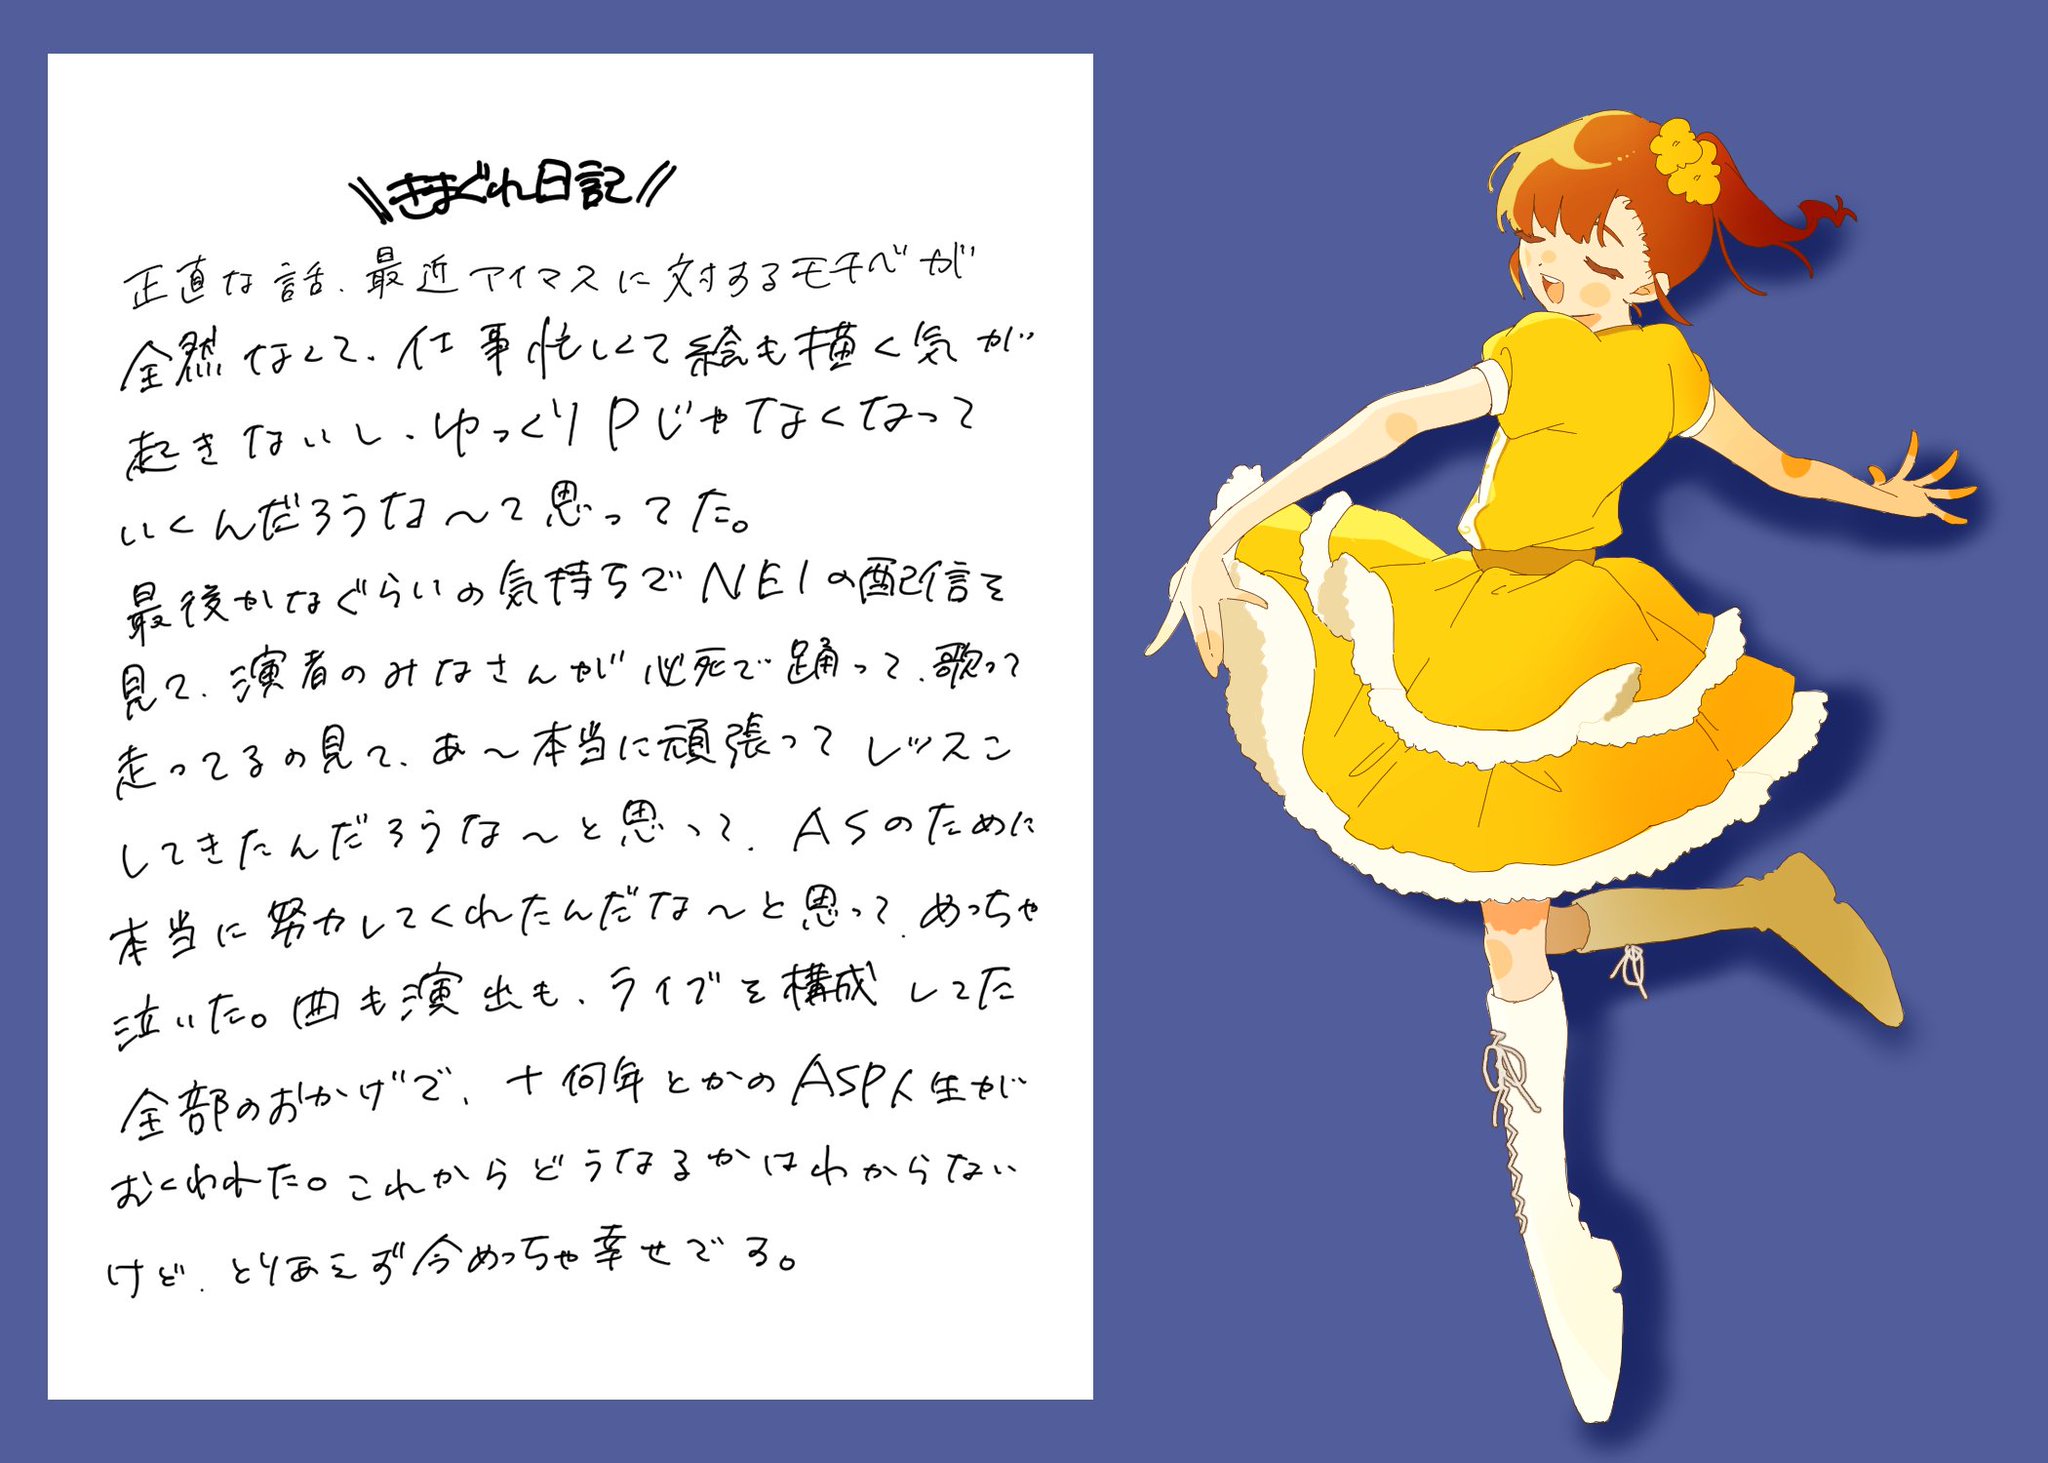 \\きまぐれ日記//
正直な話、最近アイマスに対するモチベが
全然なくて、仕事忙しくて絵も描く気が
起きないし、ゆっくりPじゃなくなって
いくんだろうな〜て思ってた。
最後かなぐらいの気持ちでNE1の配信を
見て、演者のみなさんが必死で踊って、歌って
走ってるの見て、あ〜本当に頑張ってレッスン
してきたんだろうな〜と思って、ASのために
本当に努力してくれたんだな〜と思って、めっちゃ
泣いた。曲も演出も、ライブを構成してた
全部のおかげで、十何年とかのASP人生が
むくわれた。これからどうなるかはわからない
けど、とりあえず今めっちゃ幸せでる。